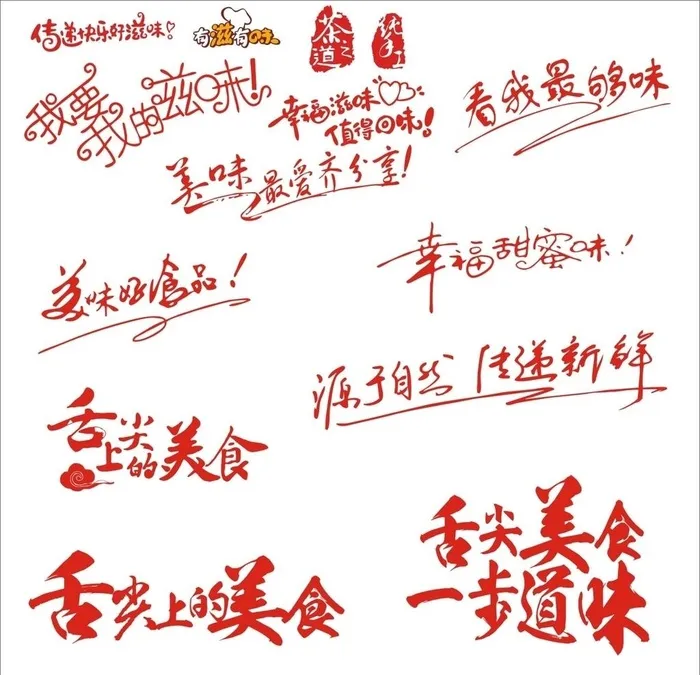 传递快乐好滋味!
有滋有味
茶之道
纯手工
我要我的滋味!
幸福滋味
值得回味!
看我最够味
美味最爱齐分享!
幸福甜蜜味!
美味好食品!
源于自然 传递新鲜
舌尖上的美食
舌尖上的美食
舌尖美食
一步道味